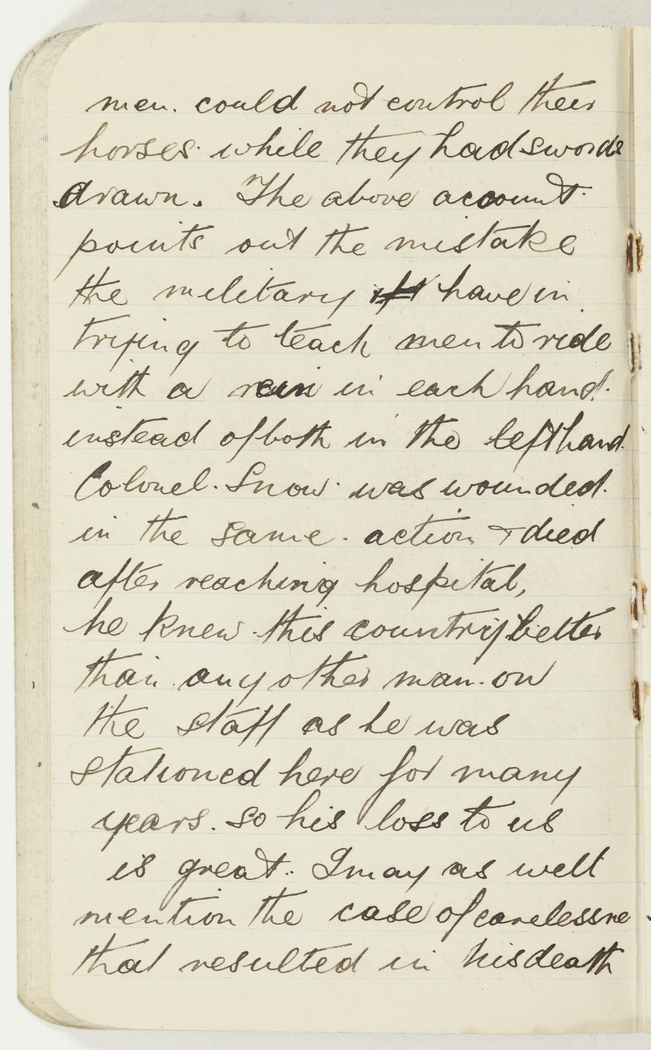 men. could not control their
horses while they had swords
drawn. The above account
points out the mistake
the military have in
trying to teach men to ride
with a rein in each hand.
instead of both in the left hand
Colonel. Snow. was wounded.
in the same. action & died
after reaching hospital,
he knew this country better
than any other man. on
the staff as he was
stationed here for many
years. so his loss to us
is great.. I may as well
mention the case of carelessne
that resulted in his death